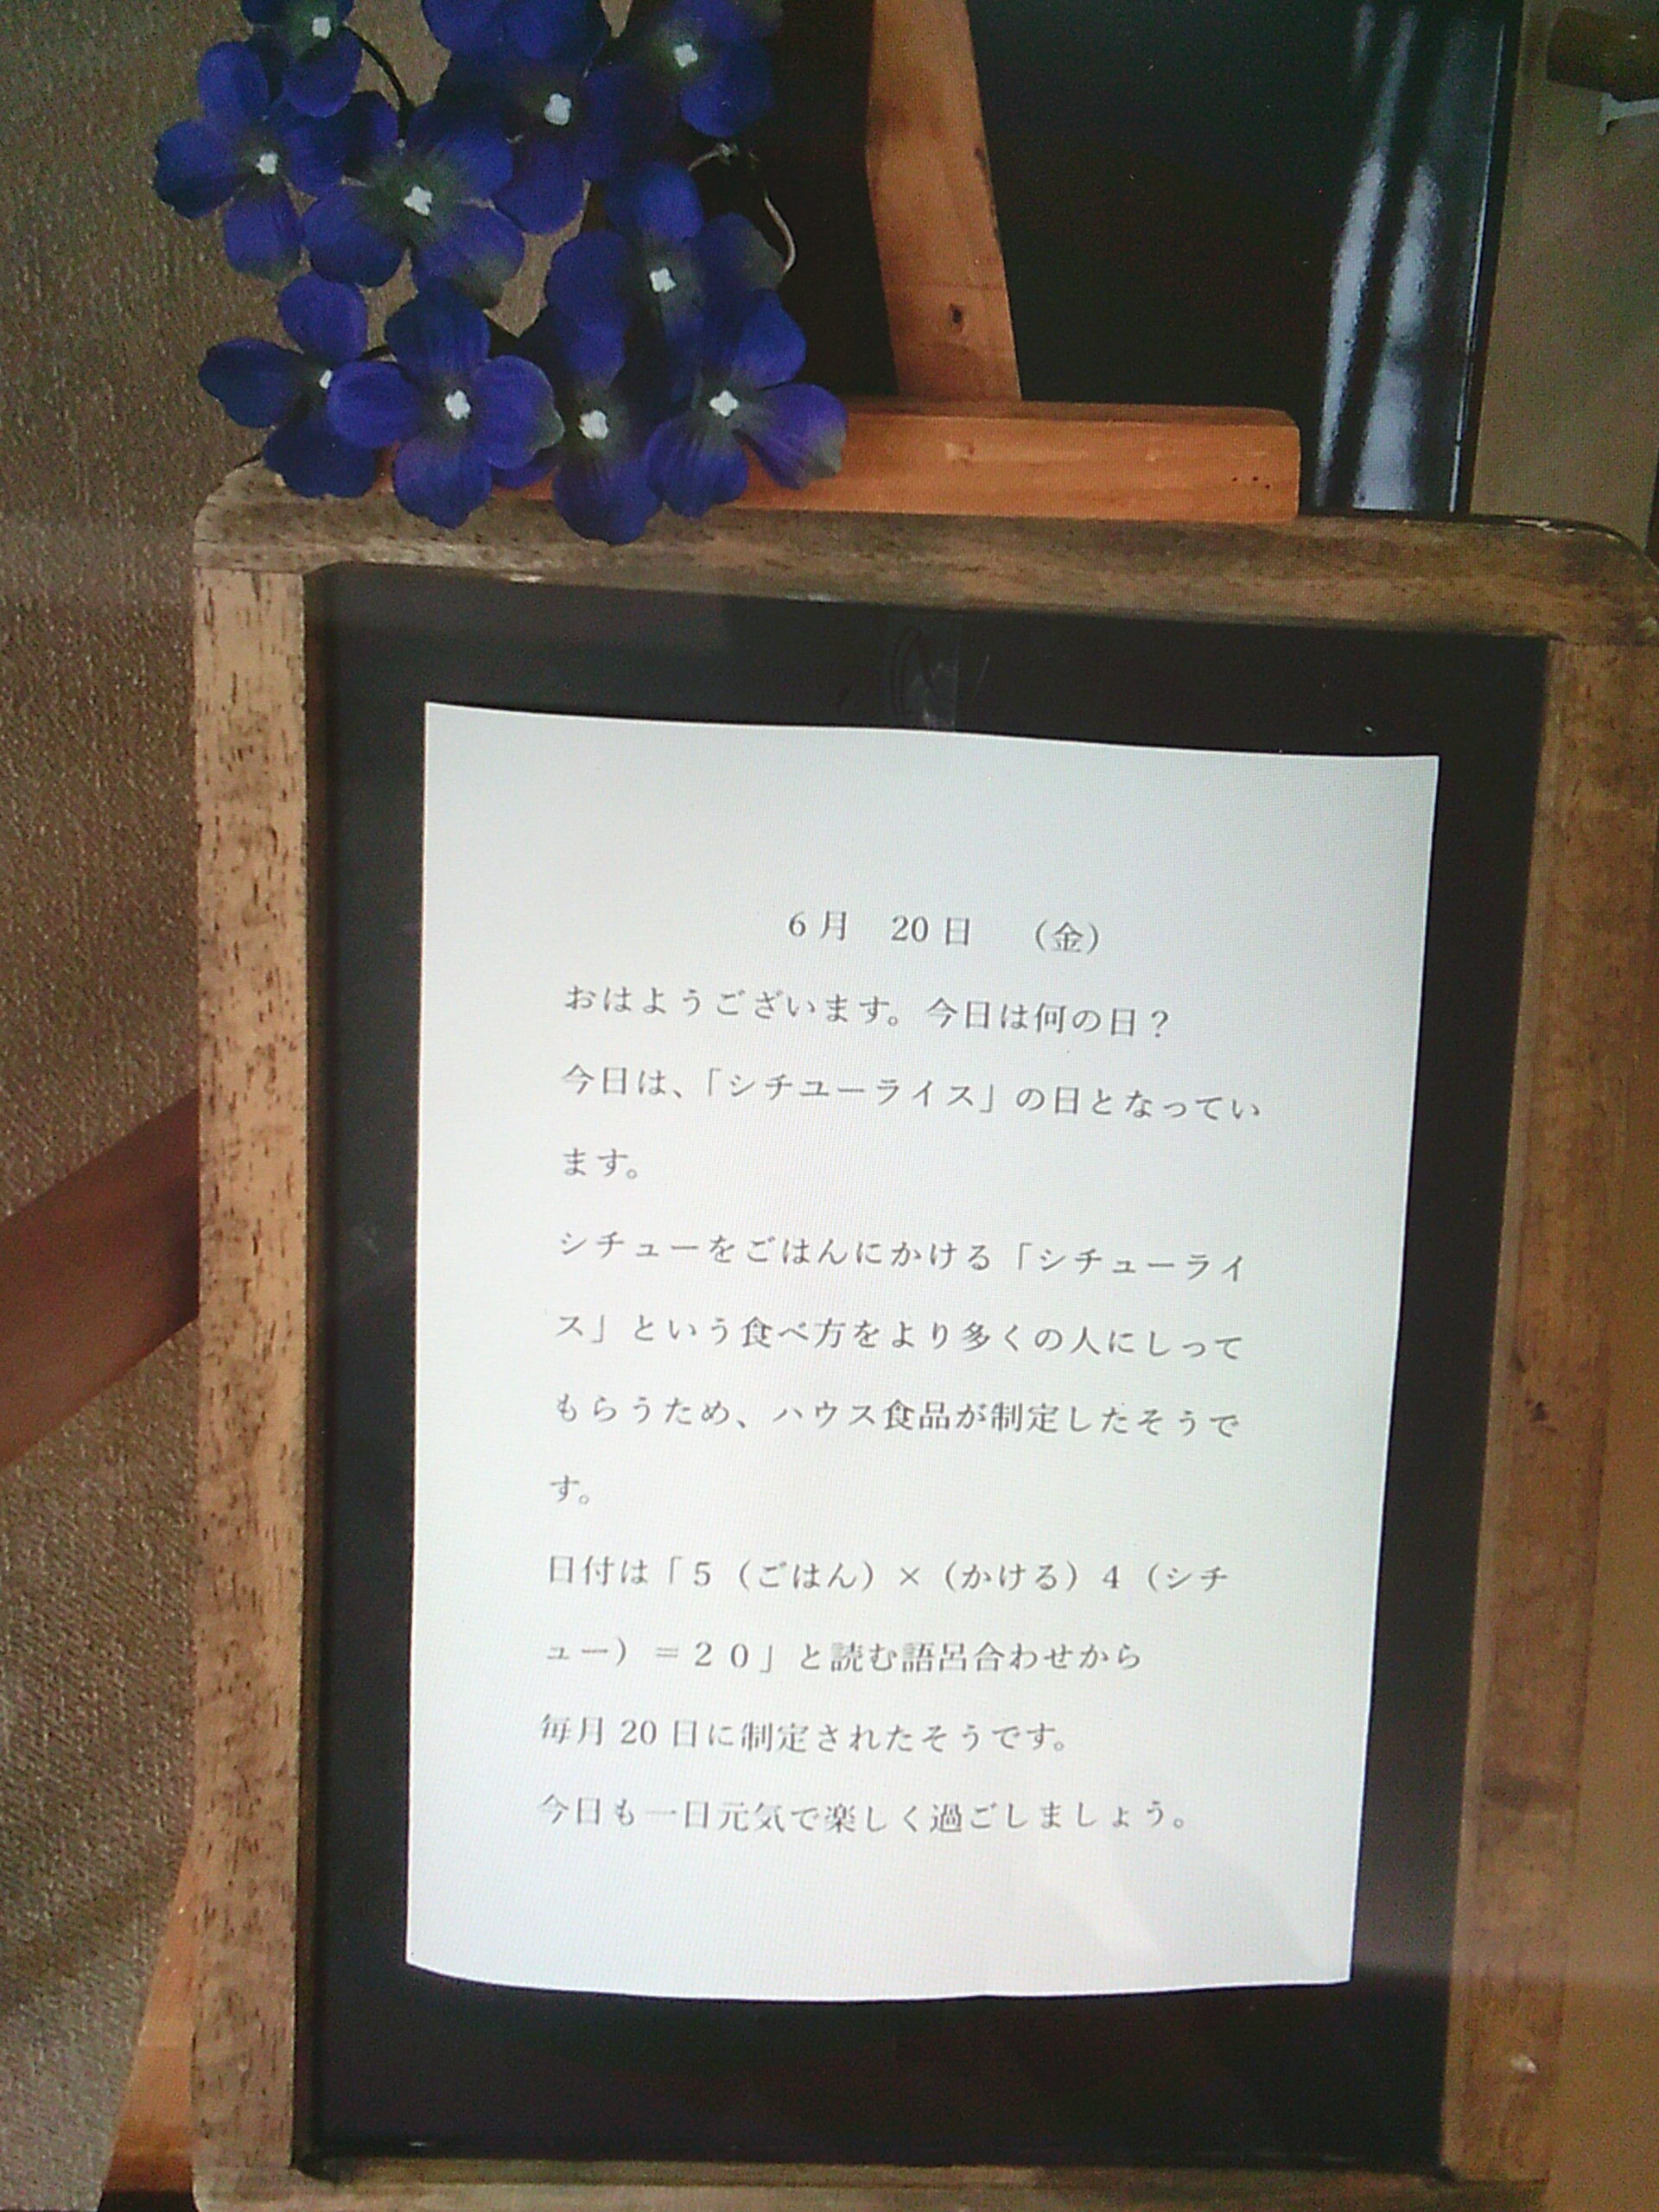 6月　20日　（金）
おはようございます。今日は何の日？
今日は、「シチユーライス」の日となってい
ます。
シチューをごはんにかける「シチューライ
ス」という食べ方をより多くの人にしって
もらうため、ハウス食品が制定したそうで
す。
日付は「５（ごはん）×（かける）４（シチ
ュー）＝２０」と読む語呂合わせから
毎月20日に制定されたそうです。
今日も一日元気で楽しく過ごしましょう。